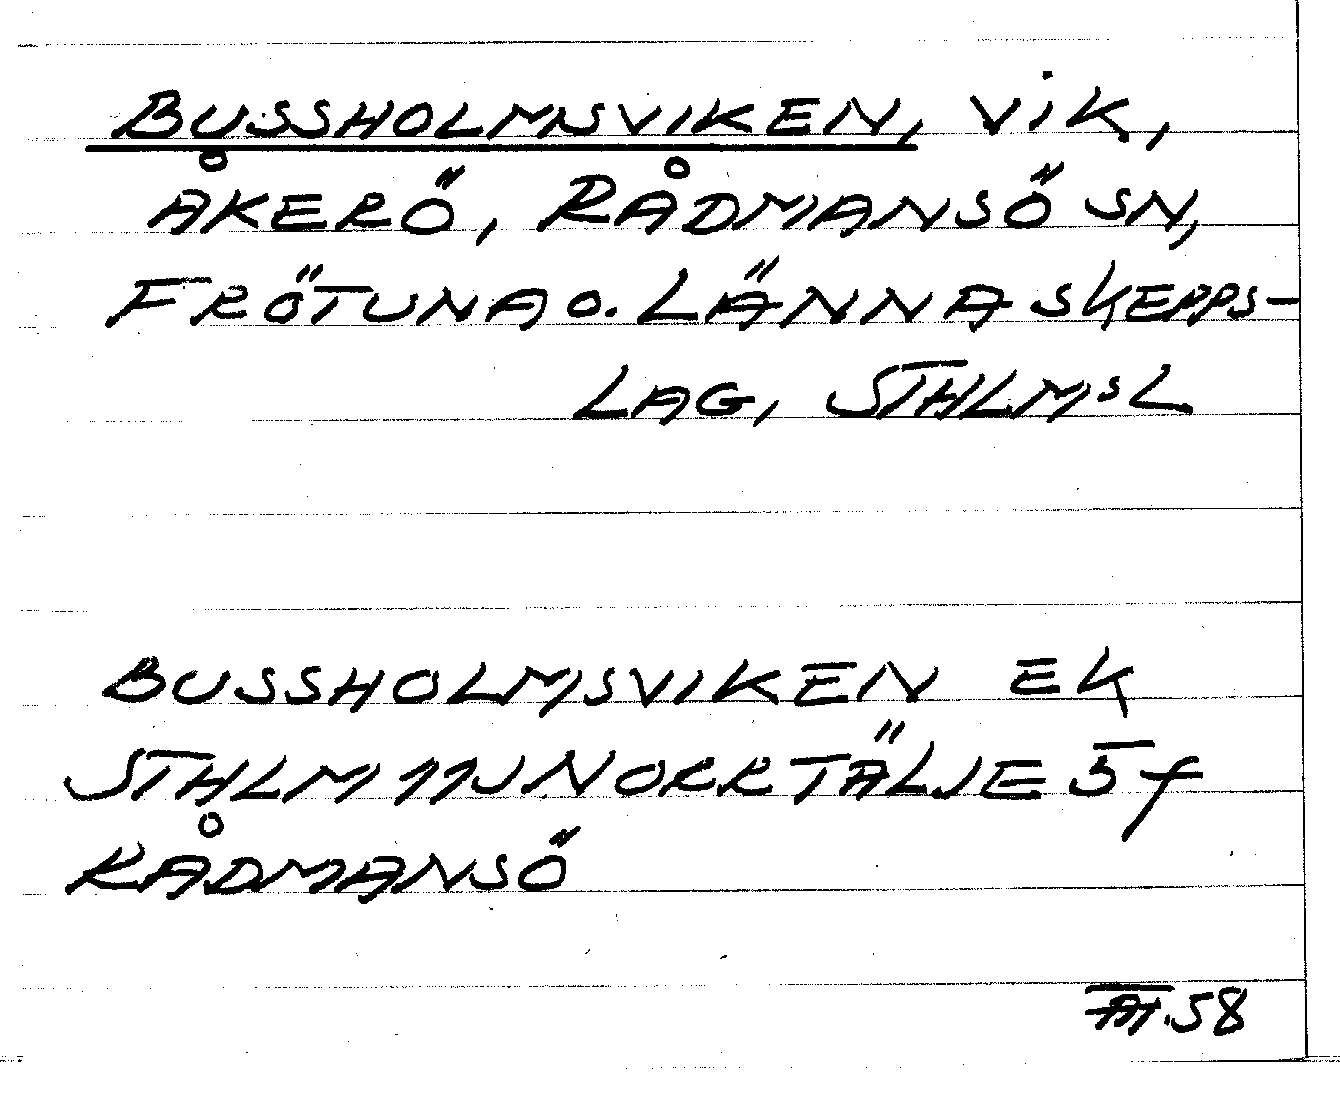 BUSSHOLMSVIKEN, VIK,
ÅKERÖ, RÅDMANSÖ SN,
FRÖTUNA O. LÄNNA SKEPPS-
LAG, STHLMSL
BUSSHOLMSVIKEN EK
STHLM 11J NORRTÄLJE 5f
RÅDMANSÖ
58